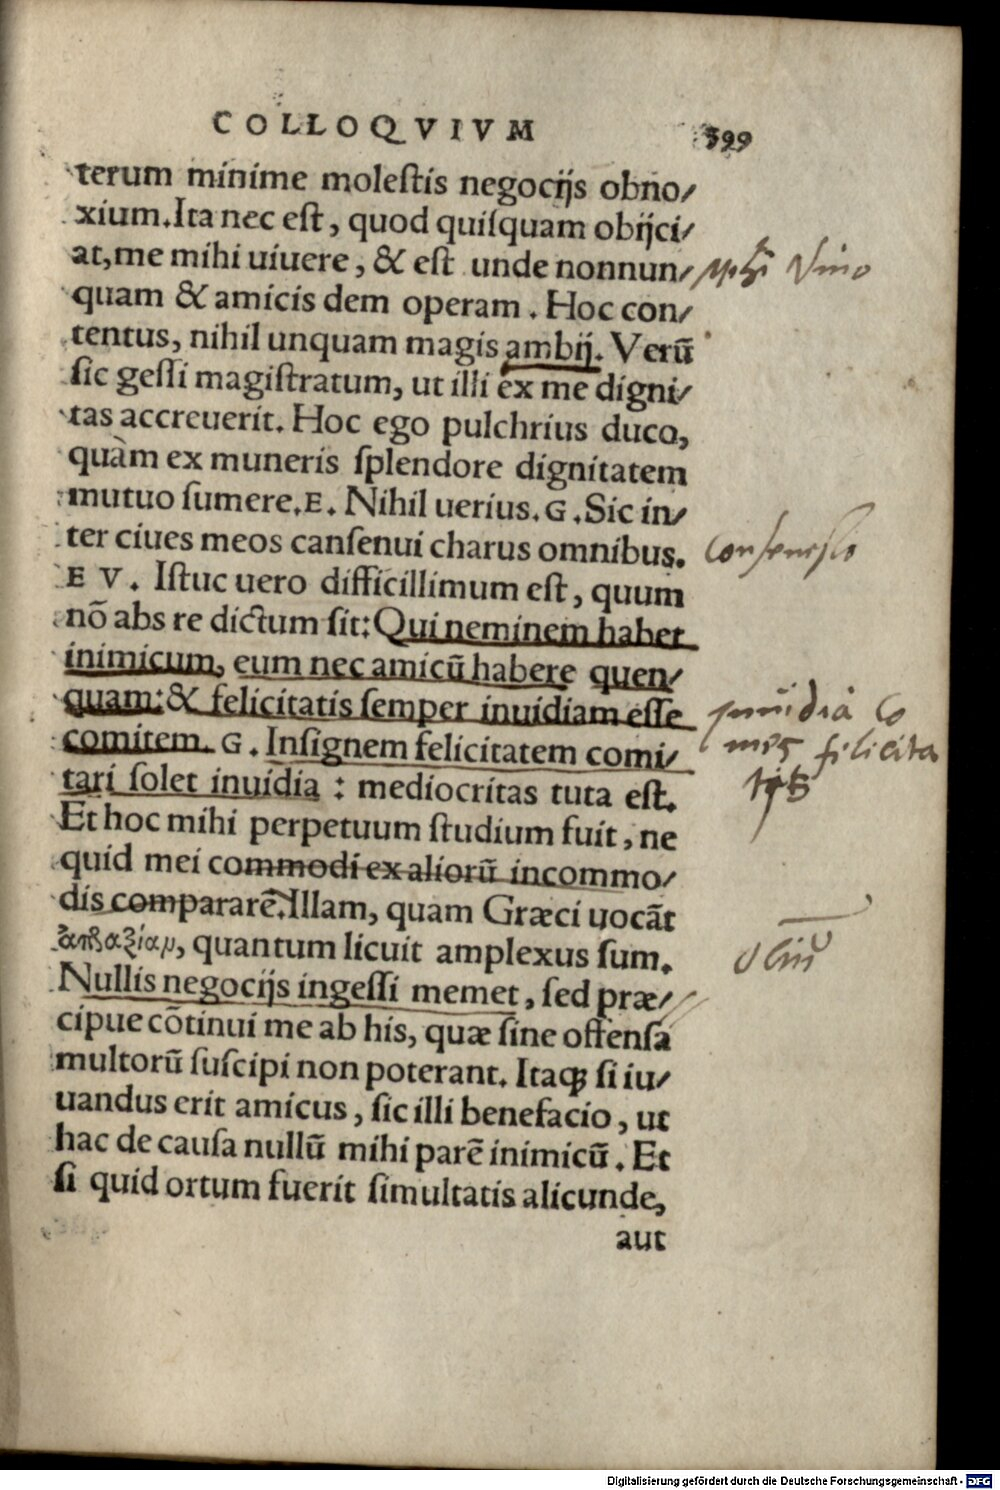 COLLOQVIVM 399
terum minime moleſtis negocijs obno/
xium.Ita nec eſt, quod quiſquam obijci/
at,me mihi uiuere, & eſt unde nonnun/
mihi vivo
quam & amicis dem operam. Hoc con/
tentus, nihil unquam magis ambij. Verū
ſic geſſi magiſtratum, ut illi ex me digni/
tas accreuerit. Hoc ego pulchrius duco,
quàm ex muneris ſplendore dignitatem
mutuo ſumere.E. Nihil uerius.G.Sic in/
ter ciues meos canſenui charus omnibus.
Conſeneſco
EV. Iſtuc uero difficillimum eſt, quum
nō abs re dictum ſit: Qui neminem habet
inimicum, eum nec amicū habere quen/
quam: & felicitatis ſemper inuidiam eſſe
inuidia co
comitem. G. Inſignem felicitatem comi/
mes felicita
tari ſolet inuidia : mediocritas tuta eſt.
tis
Et hoc mihi perpetuum ſtudium fuit, ne
quid mei commodi ex aliorū incommo/
dis compararē. Illam, quam Græci uocāt
ἀπραξίαμ, quantum licuit amplexus ſum.
Nullis negocijs ingeſſi memet, ſed præ/
cipue cōtinui me ab his, quæ ſine offenſa
multorū ſuſcipi non poterant. Itaqꝫ ſi iu/
uandus erit amicus, ſic illi benefacio, ut
hac de cauſa nullū mihi parē inimicū. Et
ſi quid ortum fuerit ſimultatis alicunde,
aut
Digitalisierung gefördert durch die Deutsche Forschungsgemeinschaft - DFG